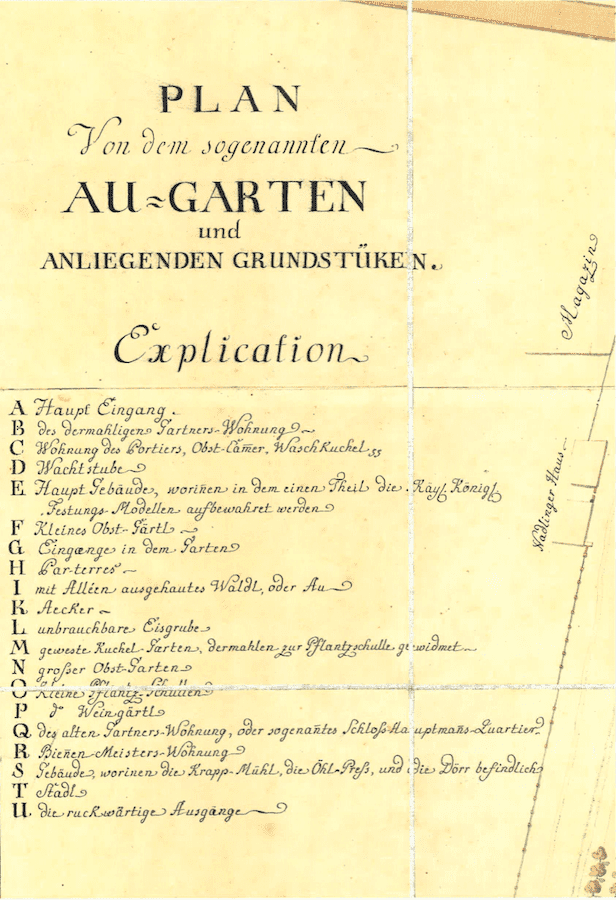 PLAN
Von dem sogenannten
AU=GARTEN
und
ANLIEGENDEN GRUNDSTÜKEN.
Explication
A Haupt Eingang.
B des dermahligen Gartners-Wohnung
C Wohnung des Portiers, Obst-Camer, WaschKuchel
D Wachtstube
E Haupt Gebäude, worinen in dem einen Theil die Käyl. Königl.
Festungs-Modellen aufbewahret werden
F Kleines Obst-Gärtl
G Eingænge in dem Garten
H Par-terres
I mit Alléen ausgehautes Waldl, oder Au
K Aecker
L unbrauchbare Eisgrube
M geweste Kuchel-Garten, dermahlen zur Pflantzschulle gewidmet
N großer Obst-Garten
O Kleine Pflantz-Schullen
P do Weingärtl
Q des alten Gartners-Wohnung, oder sogenantes Schloß-Hauptmans-Quartier
R Bienen-Meisters-Wohnung
S Gebäude, worinen die Krapp-Mühl, die Öhl-Preß, und die Dörr befindlich
T Stadl
U die ruckwärtige Ausgänge
Magazin
Nadlinger Haus